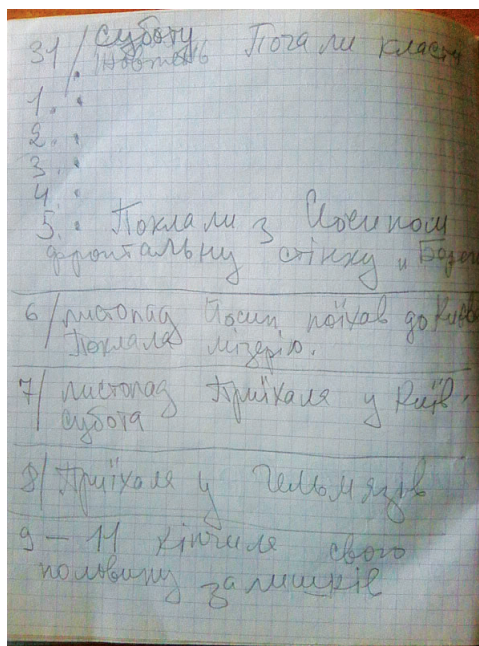 31/ суботу
жовтень Почали класти
1. •
2. •
3. •
4. •
5. • Поклали з Йосипом
фронтальну стінку и
6/ листопад Йосип поїхав до Києва
Поклала мізерію.
7/ листопад Приїхаля у Київ.
субота
8/ Приїхаля у Гельмязів
9 – 11 кінчиля свого
половину залишків